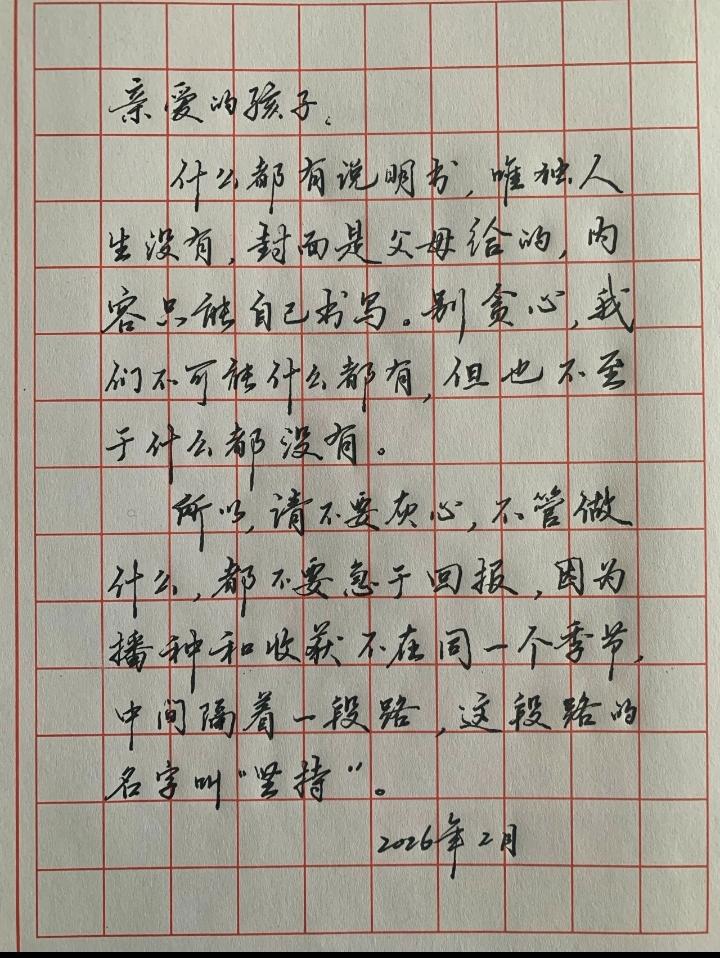 亲爱的孩子、
什么都有说明书，唯独人
生没有，封面是父母给的，内
容只能自己书写。别贪心，我
们不可能什么都有，但也不至
于什么都没有。
所以，请不要灰心，不管做
什么，都不要急于回报，因为
播种和收获不在同一个季节，
中间隔着一段路，这段路的
名字叫“坚持”。
2026年2月